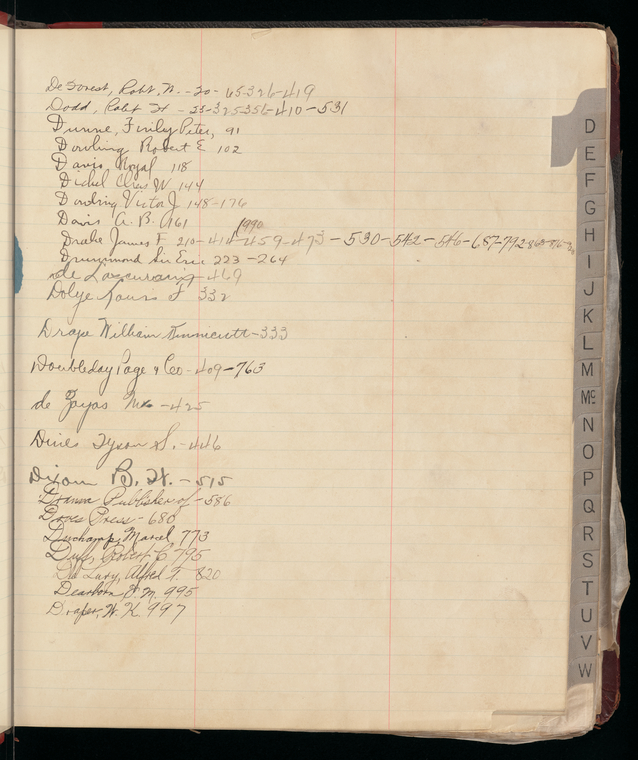 De Forest, Robt. W. - 20 - 65-326-419
Dodd, Robt H - 410-531
Dunne, Finley Peter, 91
Dowling Robert E 102
Davis Royal 118
Dickel Chris W. 144
Dowling Victor J 148-176
Davis A. B. 161
1990
Drake James F. 210-414-459-473-530-542-546-687-792
Drummond Sir Eric 223-264
de 469
Dolye 332
Drape William 333
Doubleday Page & Co - 409-763
de Zayas Mr - 425
Dines Tyson S. - 446
Dixon B. H. - 515
Drama Publisher of - 586
Press - 680
Duchamp, Marcel 773
Duff, Robert C 795
De Lury, Alfred T. 820
Dearborn 995
Draper, W. K. 997
D
E
F
G
H
I
J
K
L
M
Mc
N
O
P
Q
R
S
T
U
V
W